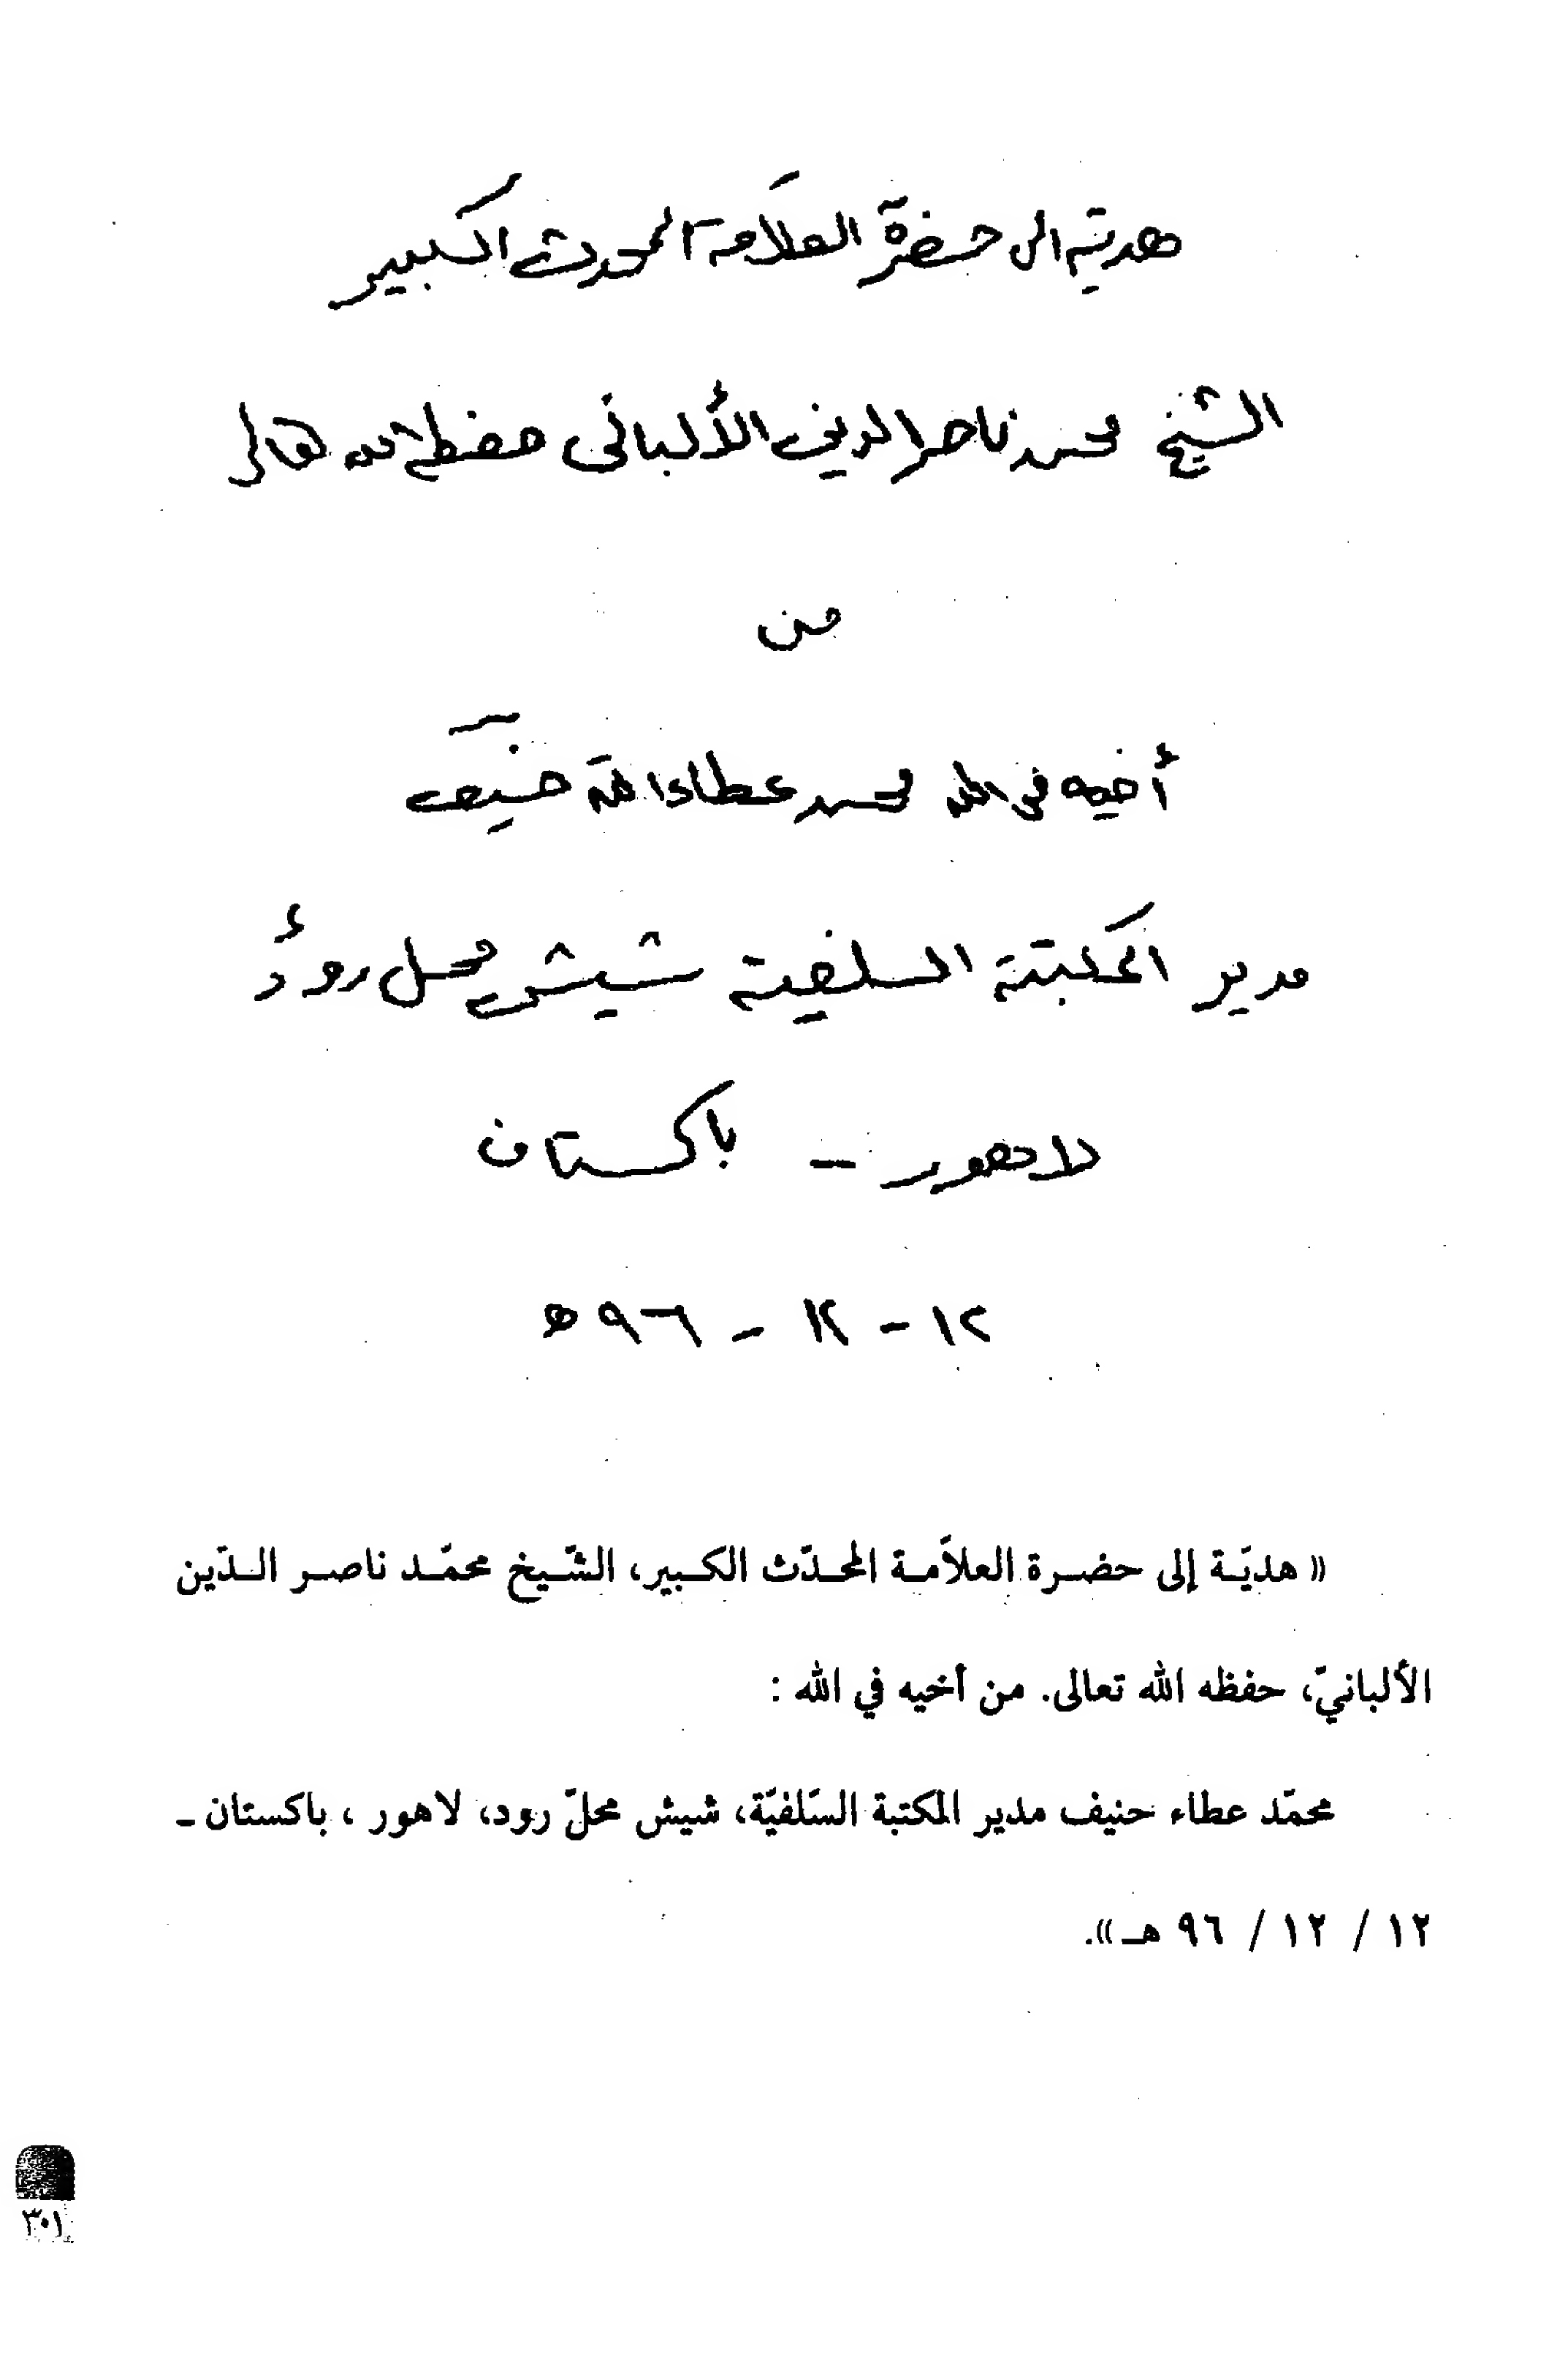 هدية الى حضرة العلامة المحدث الكبير
الشيخ محمد ناصر الدين الألبانى حفظه الله تعالى
من
أخيه فى الله محمد عطاء الله حنيف
مدير المكتبة السلفية شيش محل روڈ
لاهور - باكستان
١٢ - ١٢ - ٩٦ ھ
(( هديّة إلى حضرة العلاّمة المحدّث الكبير، الشّيخ محمّد ناصر الدّين
الألبانيّ، حفظه الله تعالى. من أخيه في الله :
محمّد عطاء حنيف مدير المكتبة السّلفيّة، شيش محلّ رود، لاهور ، باكستان ـ
١٢ / ١٢ / ٩٦ هـ )).
٣٠١